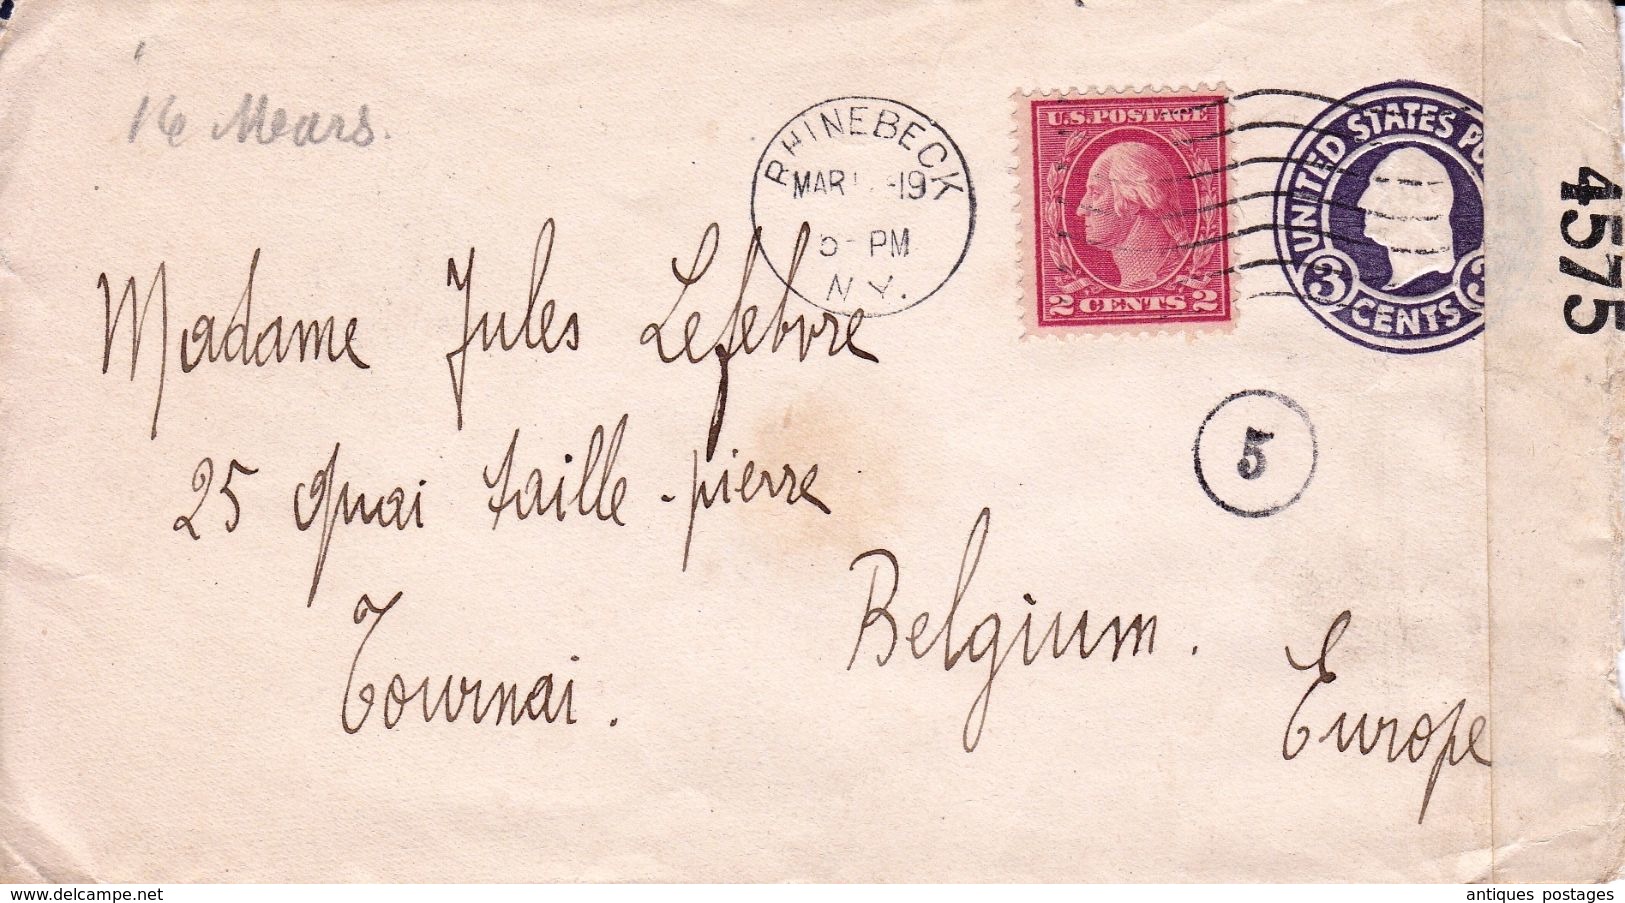 16 Mears.
RHINEBECK
MAR -19
5- PM
N.Y.
U.S. POSTAGE
2 CENTS 2
UNITED STATES
3 CENTS 3
4575
5
Madame Jules Lefebvre
25 quai taille-pierre
Tournai.
Belgium.
Europe
delcampe.net
antiques postages